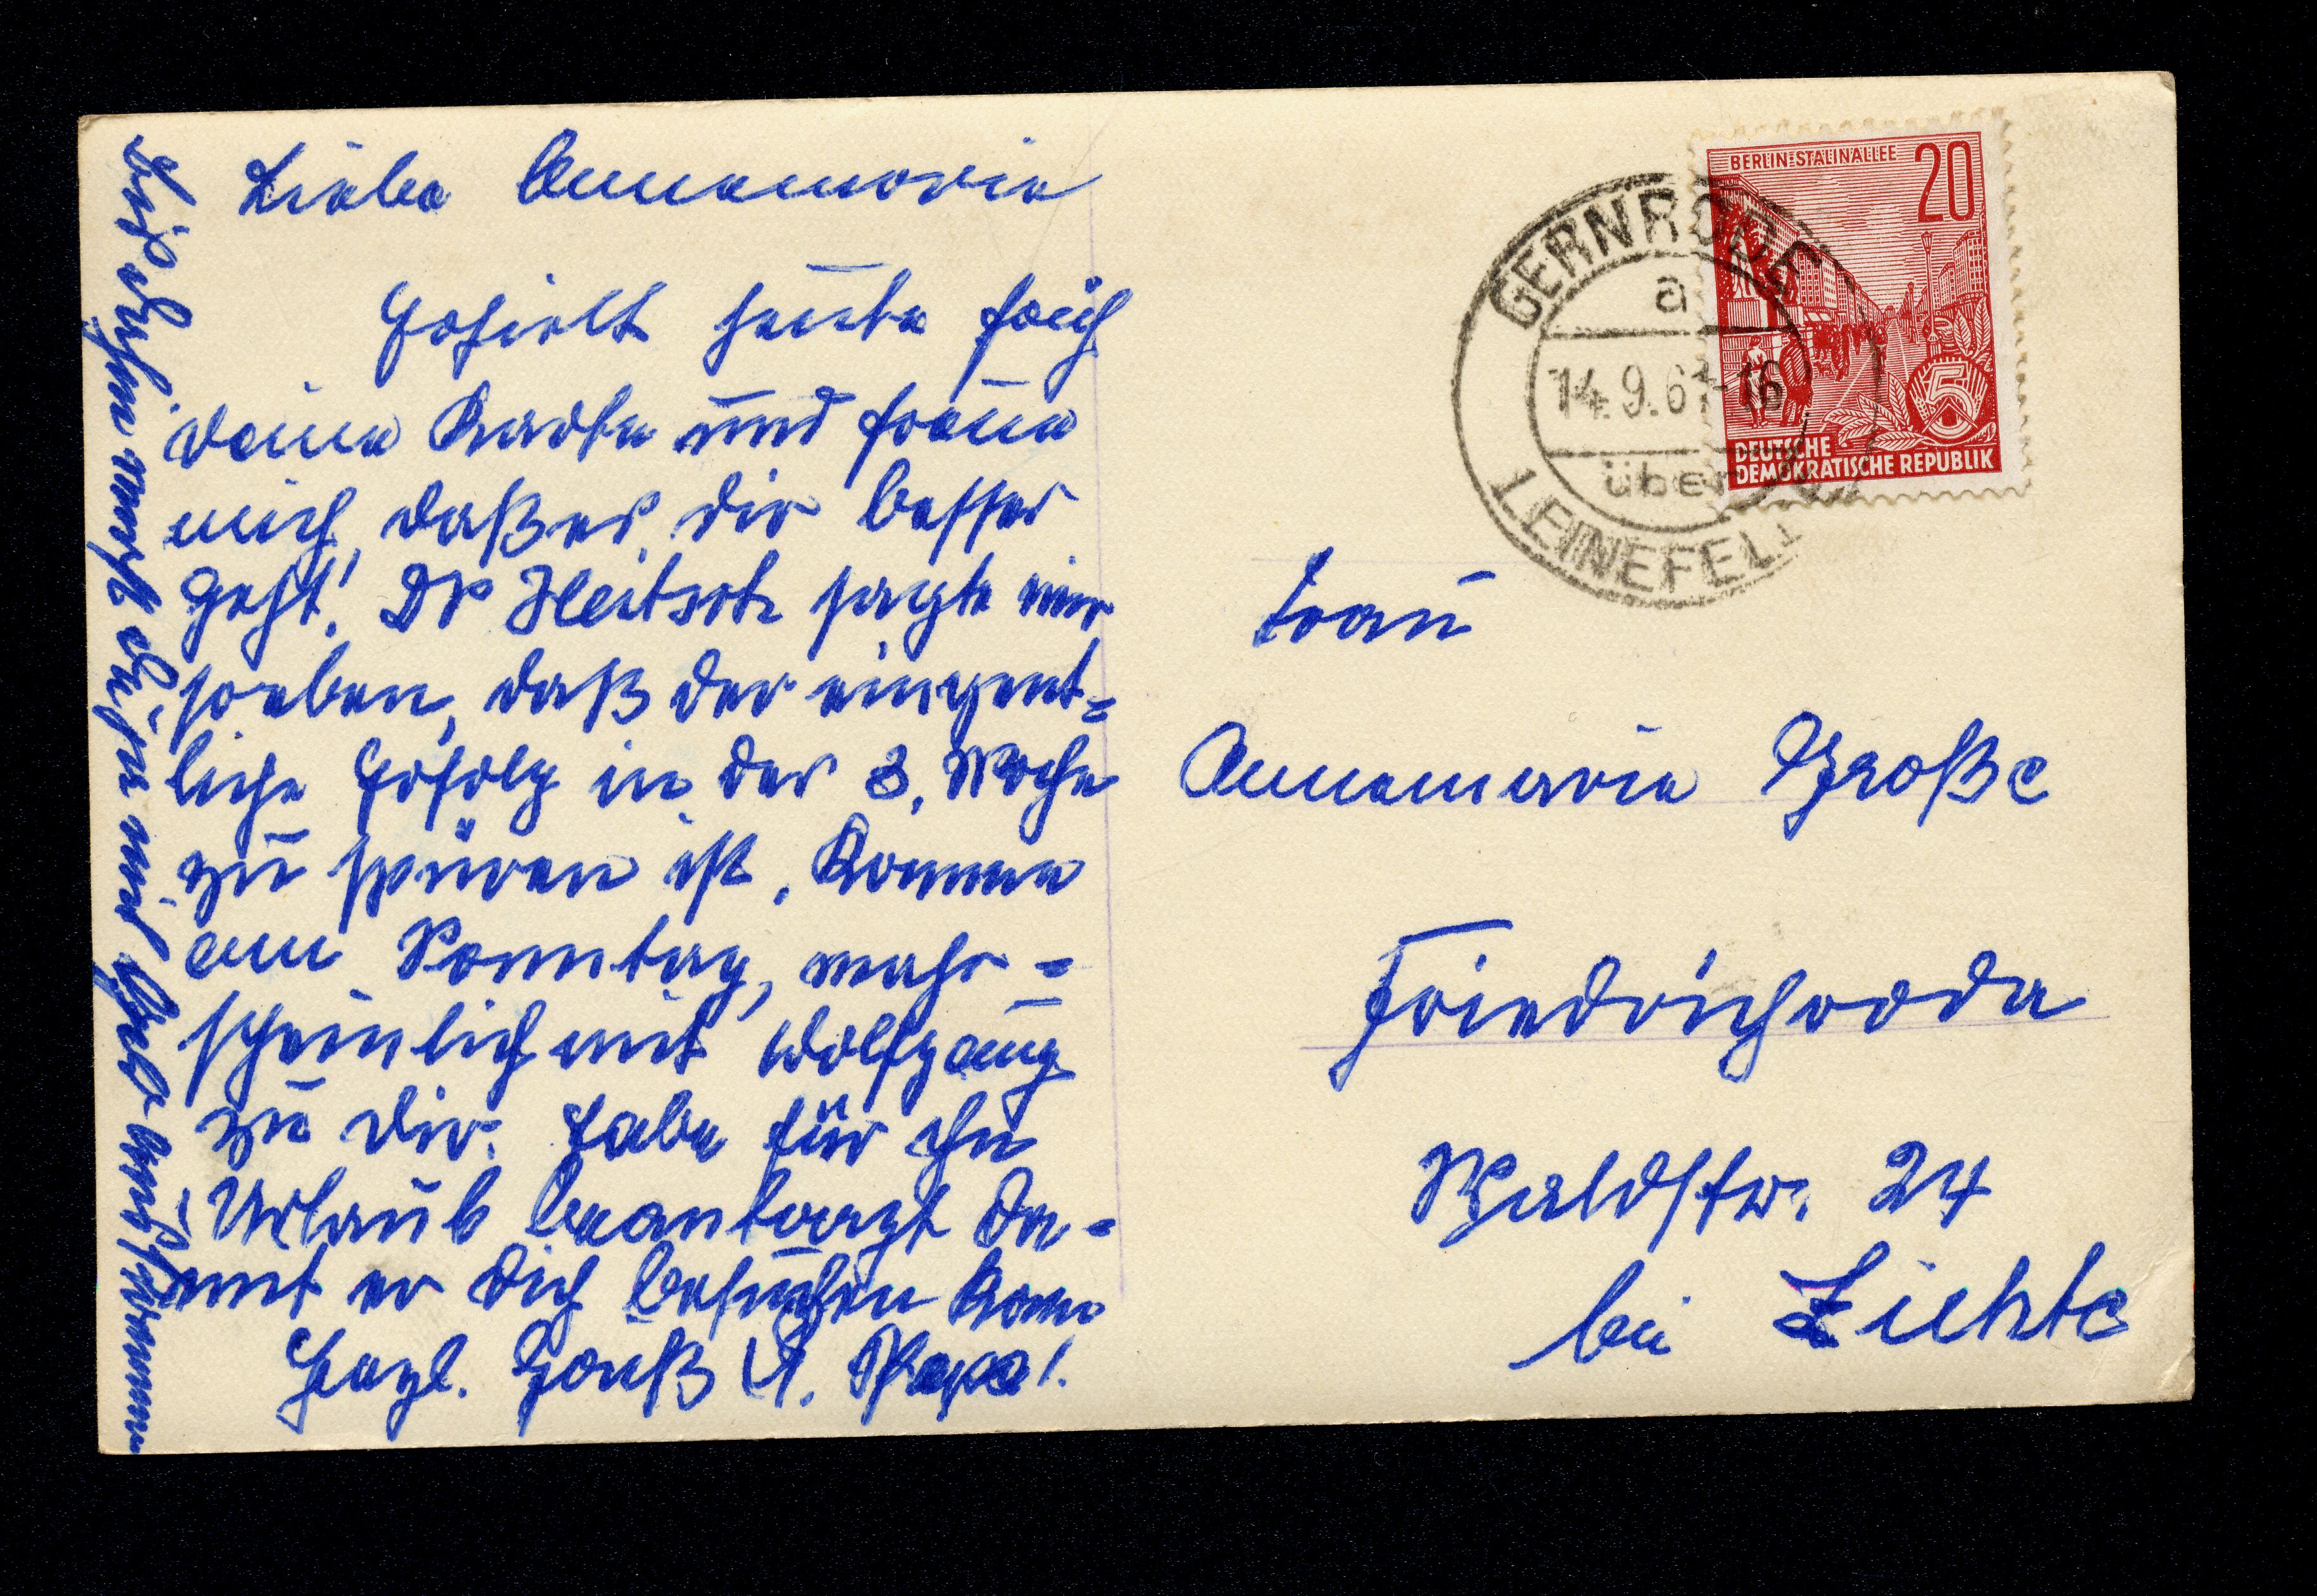 Liebe Annemarie
Erhielt heute früh
deine Karte und freue
mich, daß es dir besser
geht! Dr sagte mir
soeben, daß der eingent=
liche Erfolg in der 3. Woche
zu spüren ist. Komme
am Sonntag, wahr=
scheinlich mit Wolfgang
zu dir. Habe für ihn
Urlaub beantragt da=
mit er dich besuchen kann
Herzl. Gruß V. Papa!
mit
BERLIN-STALINALLEE 20
5
DEUTSCHE
DEMOKRATISCHE REPUBLIK
GERNRODE
a
14.9.61-16
über
LEINEFELDE
Frau
Annemarie Große
Friedrichroda
Waldstr. 24
bei Lichte